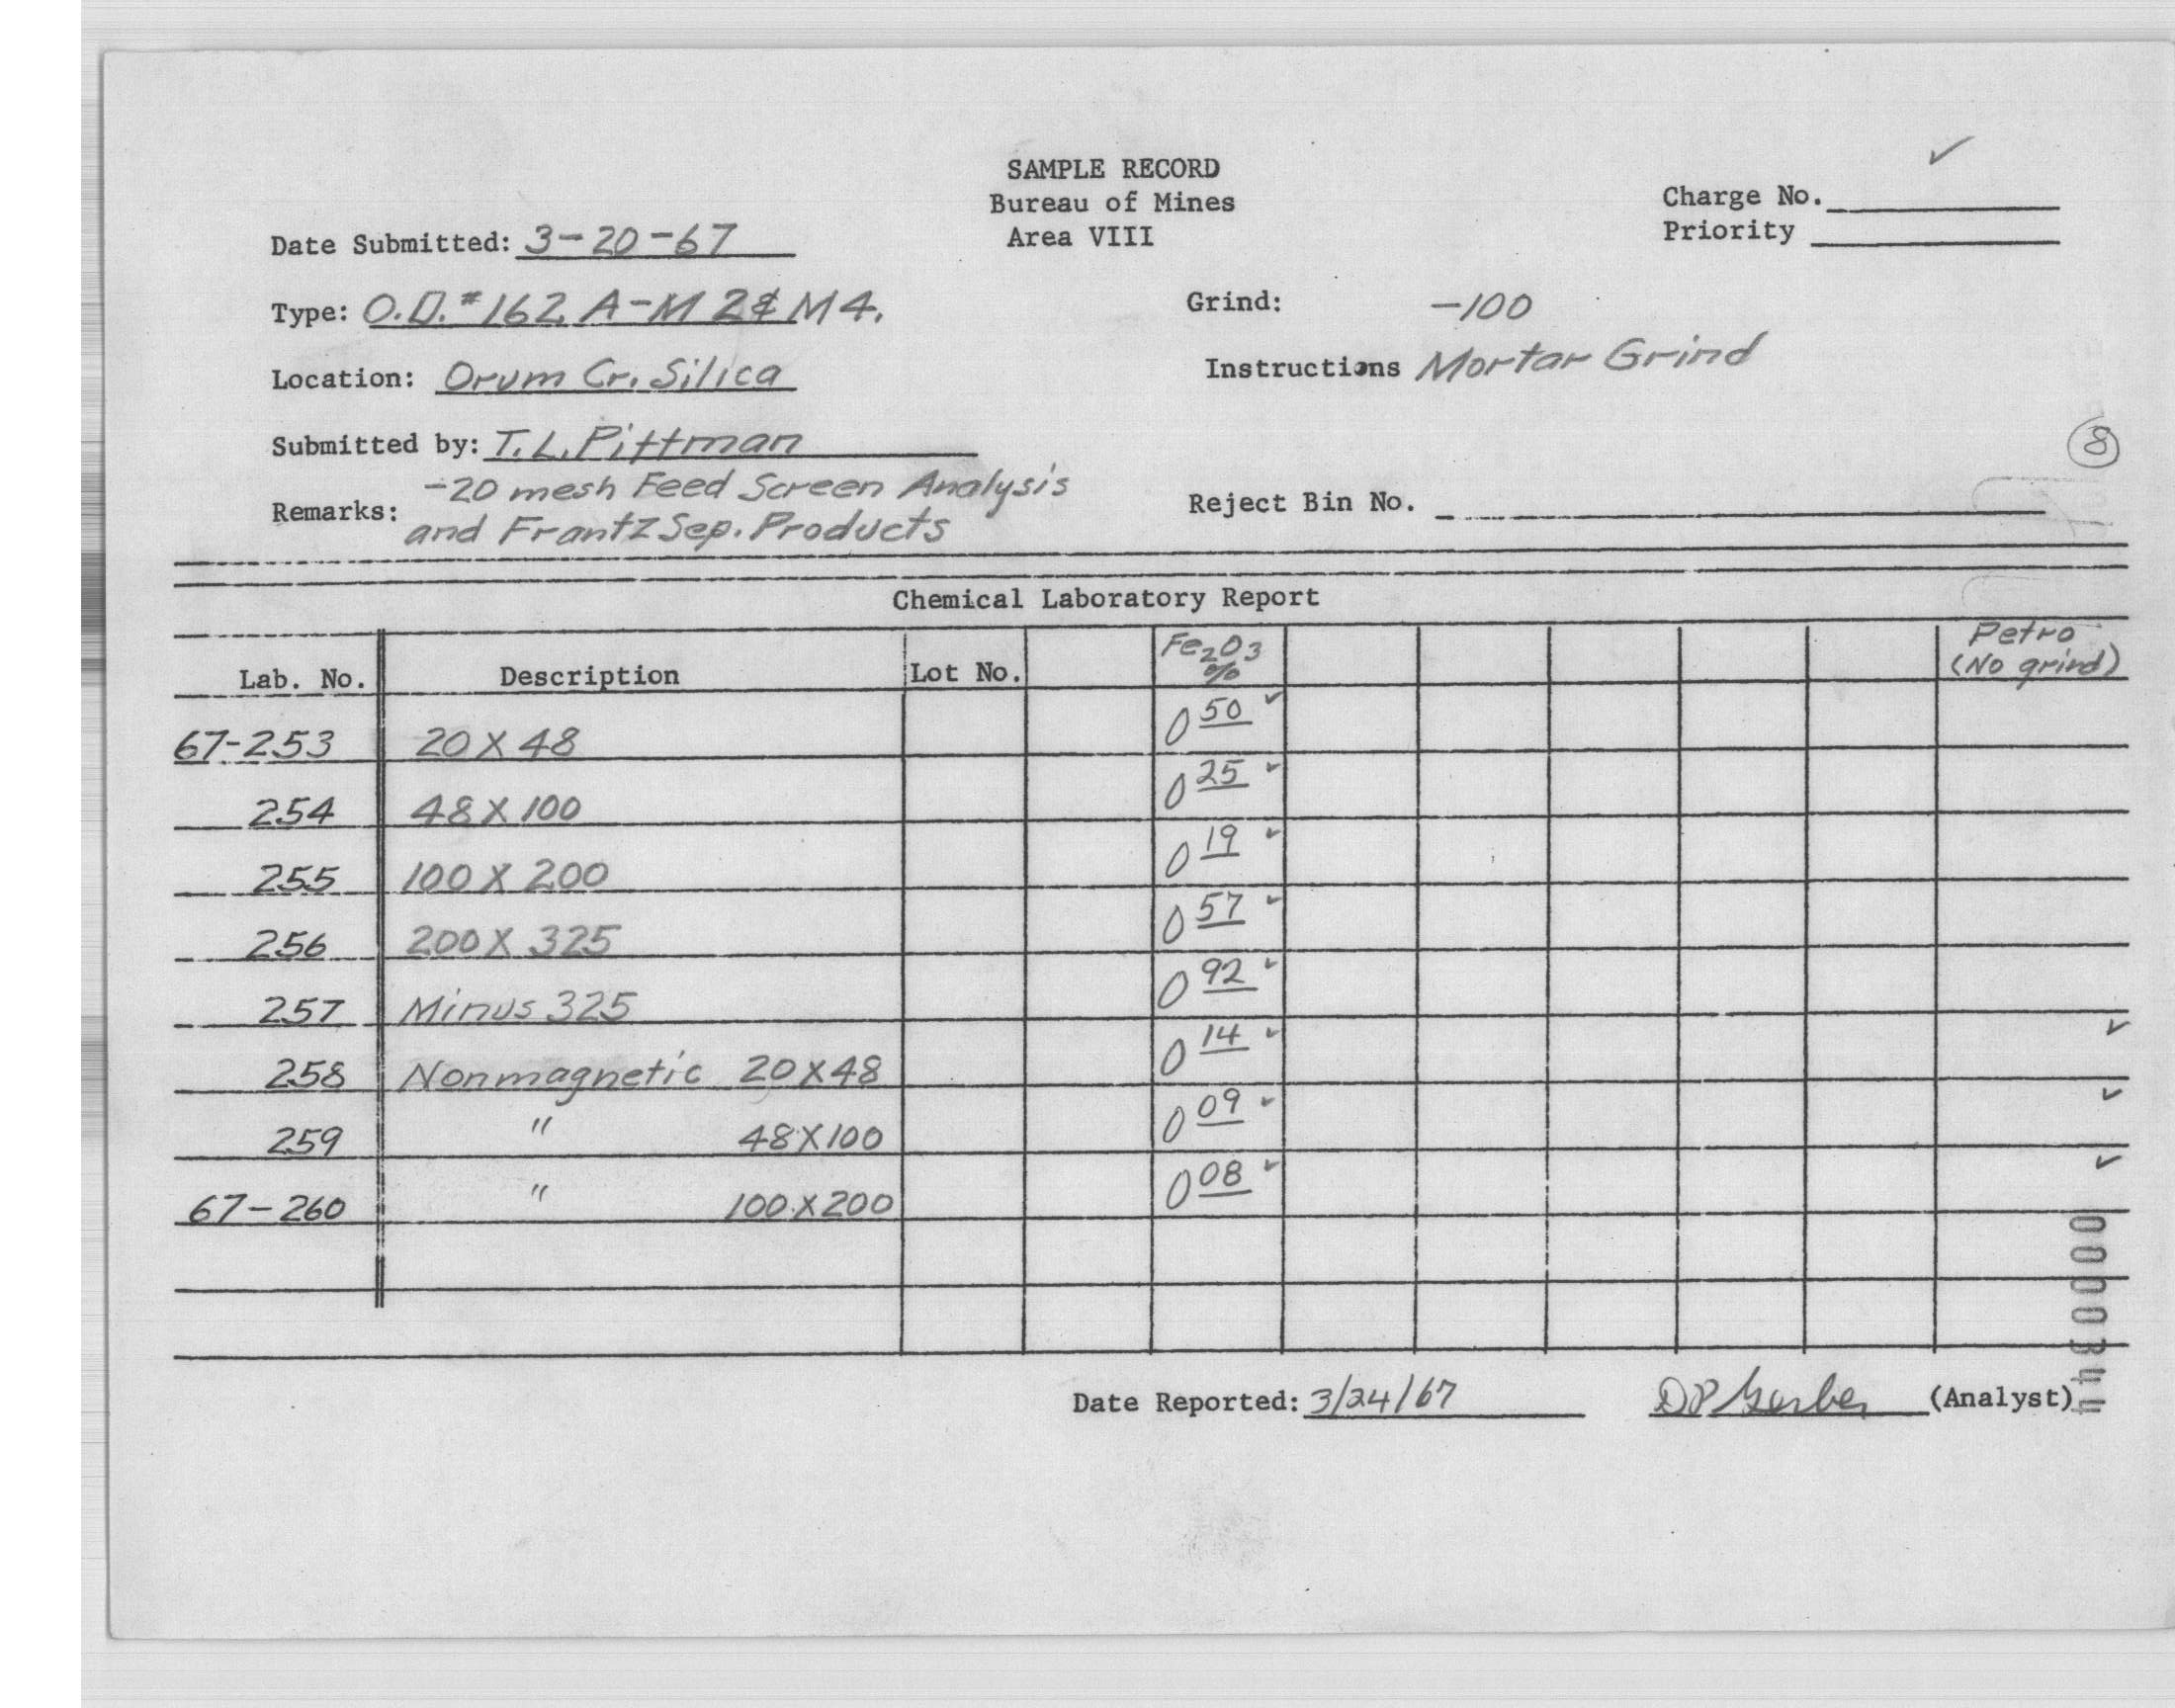 SAMPLE RECORD
Bureau of Mines
Area VIII
Charge No.
Priority
Date Submitted: 3-20-67
Type: O.D.#162 A-M 2 & M 4.
Grind: -100
Location: Orum Cr. Silica
Instructions Mortar Grind
Submitted by: T.L. Pittman
8
Remarks: -20 mesh Feed Screen Analysis
and Frantz Sep. Products
Reject Bin No.
Chemical Laboratory Report
Lab. No. Description Lot No. Fe2O3 % Petro (No grind)
67-253 20 X 48 0 50 ✓
254 48 X 100 0 25 ✓
255 100 X 200 0 19 ✓
256 200 X 325 0 57 ✓
257 Minus 325 0 92 ✓
258 Nonmagnetic 20 X 48 0 14 ✓ ✓
259 " 48 X 100 0 09 ✓ ✓
67-260 " 100 X 200 0 08 ✓ ✓
Date Reported: 3/24/67 DP Gerber (Analyst)
0000344